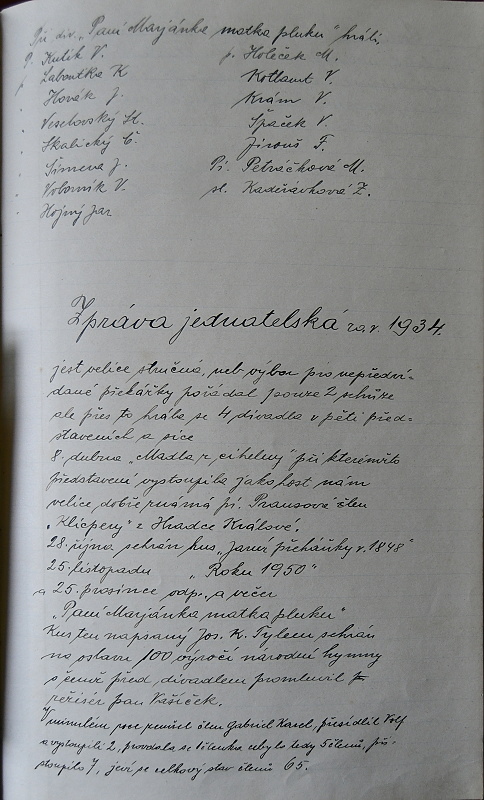 Při div. "Paní Marjánka matka pluku" hráli.
p. Kulík V. p. Holeček M.
Labouťka K Kotlant V.
Novák J. Krám V.
Veselovský St. Špaček V.
Skalický Č. Jirouš F.
Šimena J. Pí. Petráčková M.
Voborník V. sl. Kadeřávková Z.
Hojný Jar
Zpráva jednatelská za r. 1934.
jest velice stručná, neb výbor pro nepředví-
dané překážky pořádal pouze 2 schůze
ale přes to hrála se 4 divadla v pěti před-
staveních a sice
8. dubna "Madla z cihelny" při kterémžto
představení vystoupila jako host nám
velice dobře známá pí. Prausová člen
"Klicpery" z Hradce Králové.
28. října sehrán kus "Jarní přeháňky v. 1848"
25. listopadu "Roku 1950"
a 25. prosince odp. a večer
"Paní Marjánka matka pluku"
Kus ten napsaný Jos. K. Tylem sehrán
na oslavu 100 výročí národní hymny
s čemž před divadlem promluvil
režisér pan Vašíček.
V minulém roce zemřel člen Gabriel Karel, přesídlil Volf
a vystoupili 2, provdala se 1 členka ubylo tedy 5 členů, při-
stoupilo 7, jeví se celkový stav členů 65.